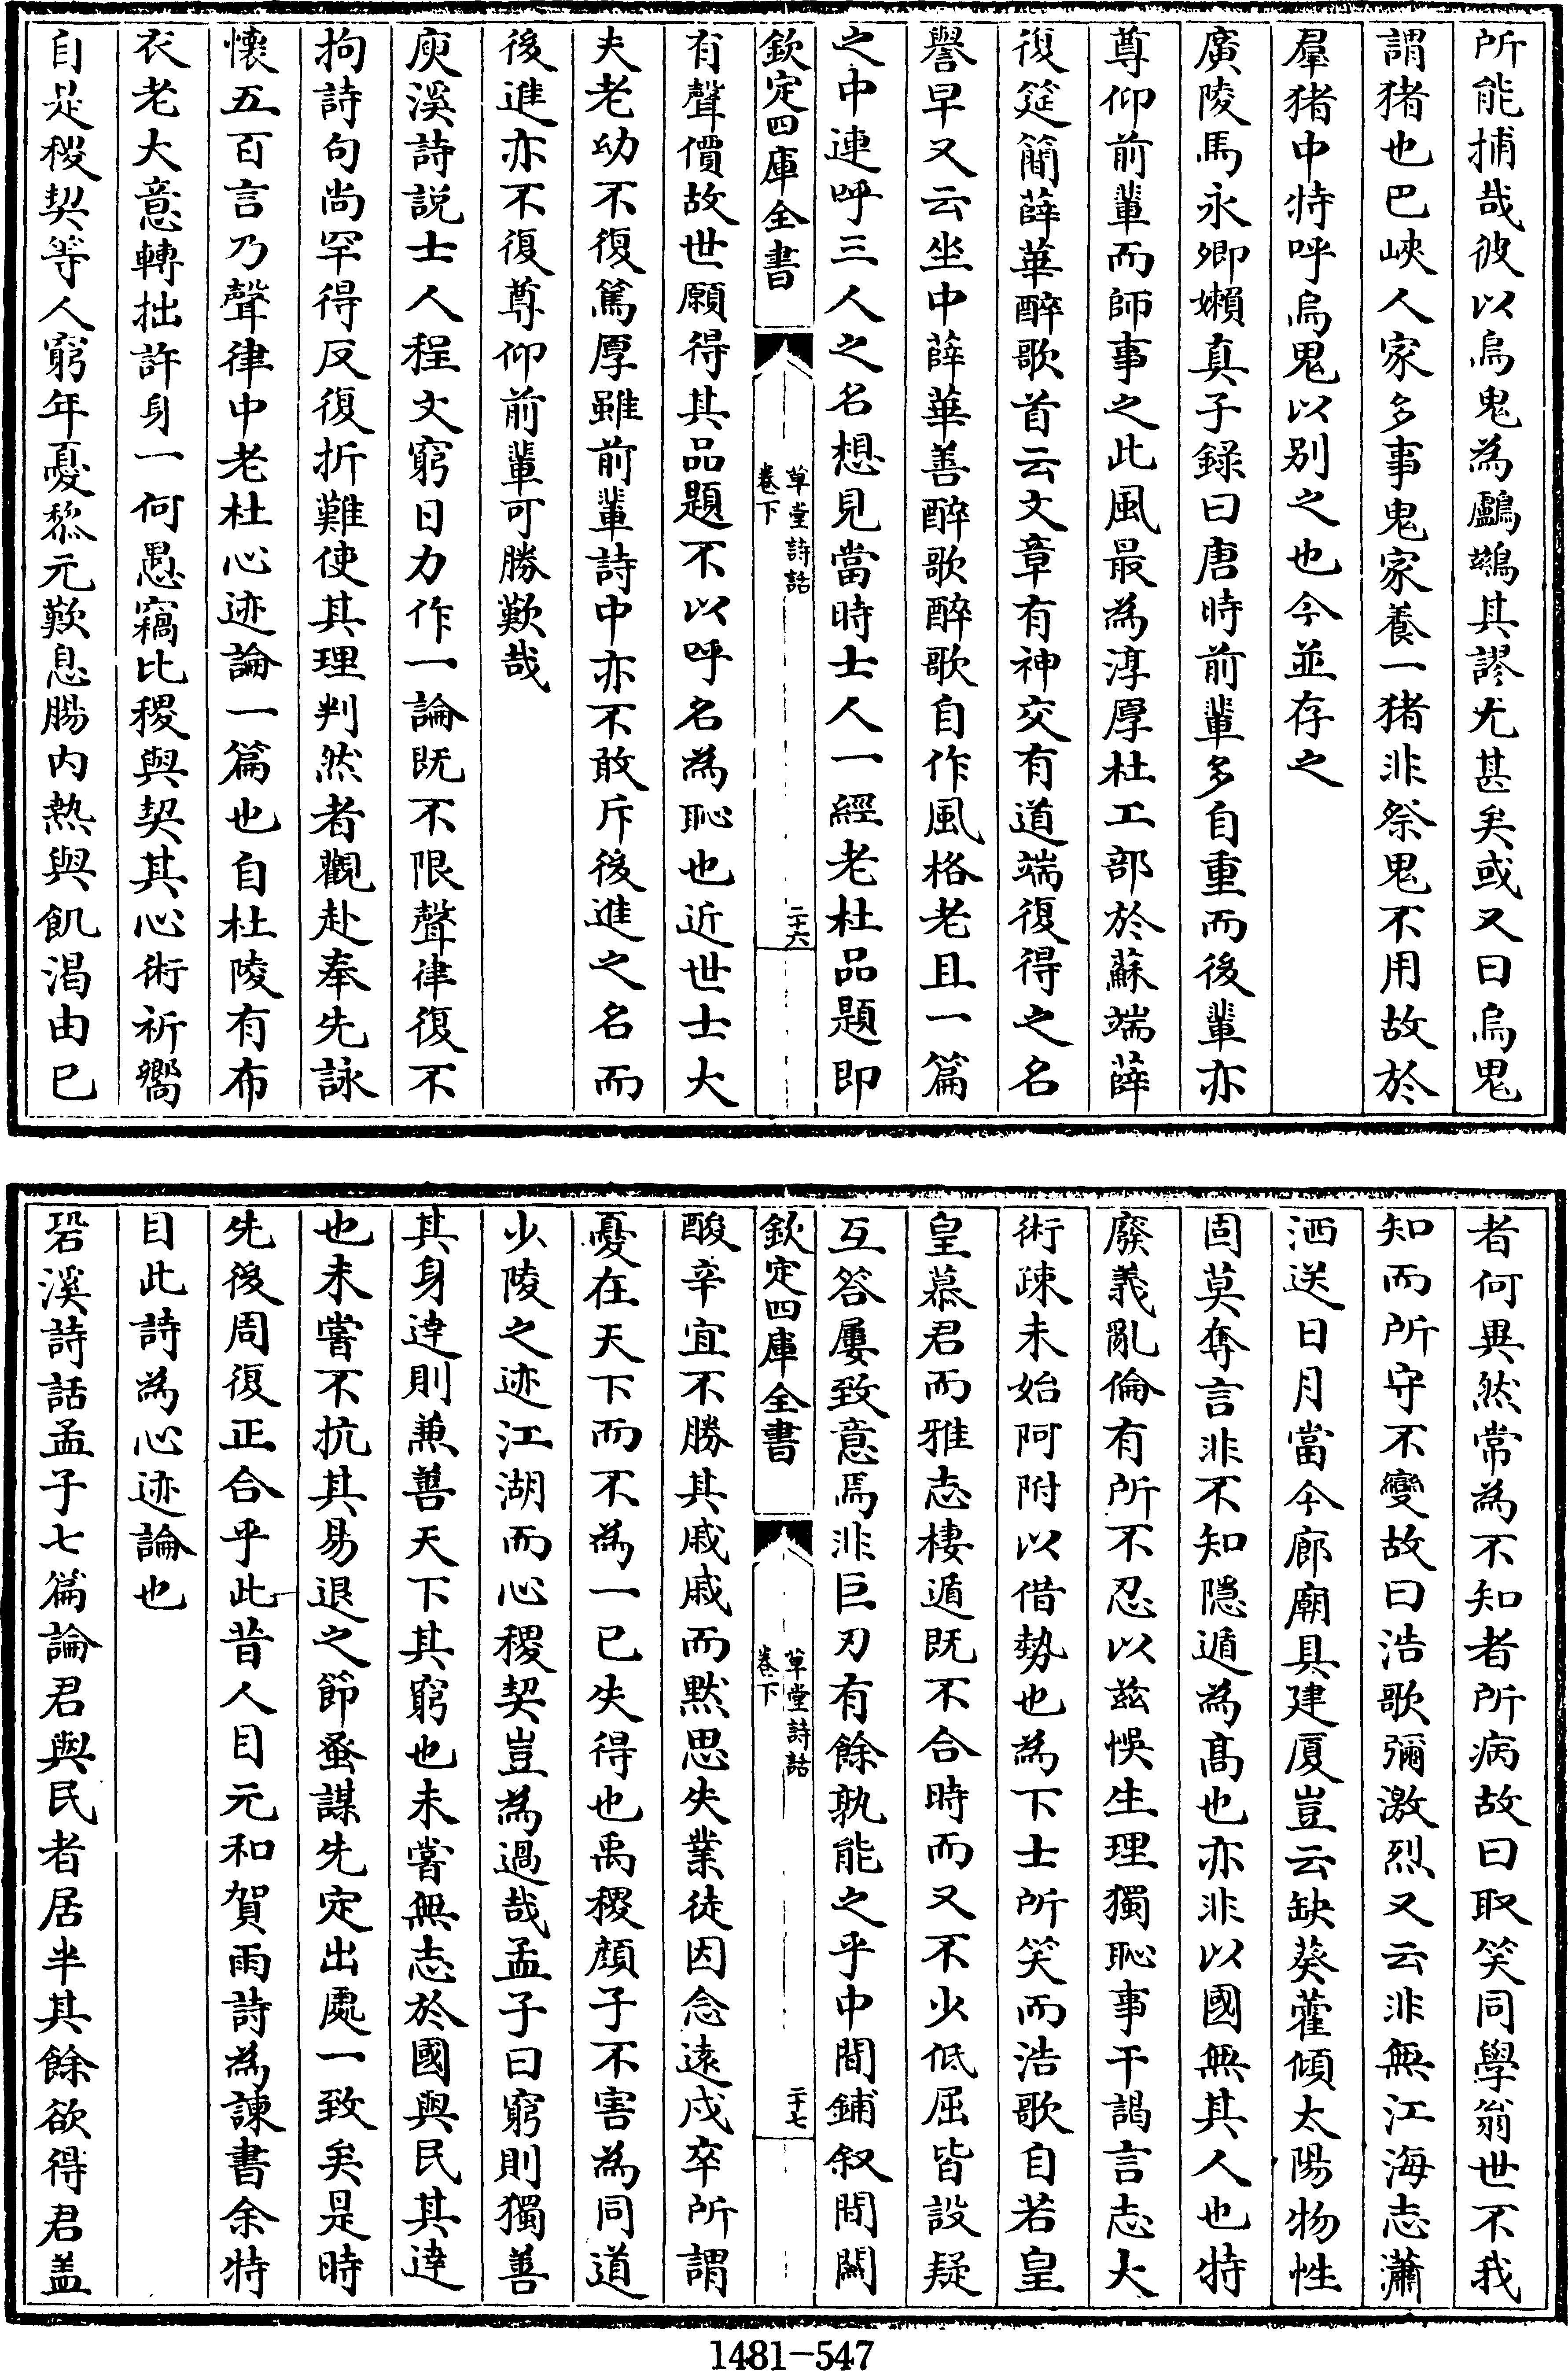 所能捕哉彼以烏鬼為鸕鷀其謬尤甚矣或又曰烏鬼
謂猪也巴峽人家多事鬼家養一猪非祭鬼不用故於
羣猪中特呼烏鬼以别之也今並存之
廣陵馬永卿嬾真子錄曰唐時前輩多自重而後輩亦
尊仰前輩而師事之此風最為淳厚杜工部於蘇端薛
復筵簡薛華醉歌首云文章有神交有道端復得之名
譽早又云坐中薛華善醉歌醉歌自作風格老且一篇
之中連呼三人之名想見當時士人一經老杜品題即
欽定四庫全書
草堂詩話
卷下
二十六
有聲價故世願得其品題不以呼名為恥也近世士大
夫老幼不復篤厚雖前輩詩中亦不敢斥後進之名而
後進亦不復尊仰前輩可勝歎哉
庾溪詩説士人程文窮日力作一論既不限聲律復不
拘詩句尚罕得反復折難使其理判然者觀赴奉先詠
懷五百言乃聲律中老杜心迹論一篇也自杜陵有布
衣老大意轉拙許身一何愚竊比稷與契其心術祈嚮
自是稷契等人窮年憂黎元歎息腸内熱與飢渴由已
者何異然常為不知者所病故曰取笑同學翁世不我
知而所守不變故曰浩歌彌激烈又云非無江海志瀟
洒送日月當今廊廟具建厦豈云缺葵藿傾太陽物性
固莫奪言非不知隱遁為髙也亦非以國無其人也特
廢義亂倫有所不忍以兹悮生理獨恥事干謁言志大
術疎未始阿附以借勢也為下士所笑而浩歌自若皇
皇慕君而雅志棲遁既不合時而又不少低屈皆設疑
互答屢致意焉非巨刃有餘孰能之乎中間鋪叙間闗
欽定四庫全書
草堂詩話
卷下
二十七
酸辛宜不勝其戚戚而黙思失業徒因念逺戍卒所謂
憂在天下而不為一已失得也禹稷顔子不害為同道
少陵之迹江湖而心稷契豈為過哉孟子曰窮則獨善
其身達則兼善天下其窮也未嘗無志於國與民其達
也未嘗不抗其易退之節蚤謀先定出處一致矣是時
先後周復正合乎此昔人目元和賀雨詩為諫書余特
目此詩為心迹論也
䂬溪詩話孟子七篇論君與民者居半其餘欲得君盖
1481-547